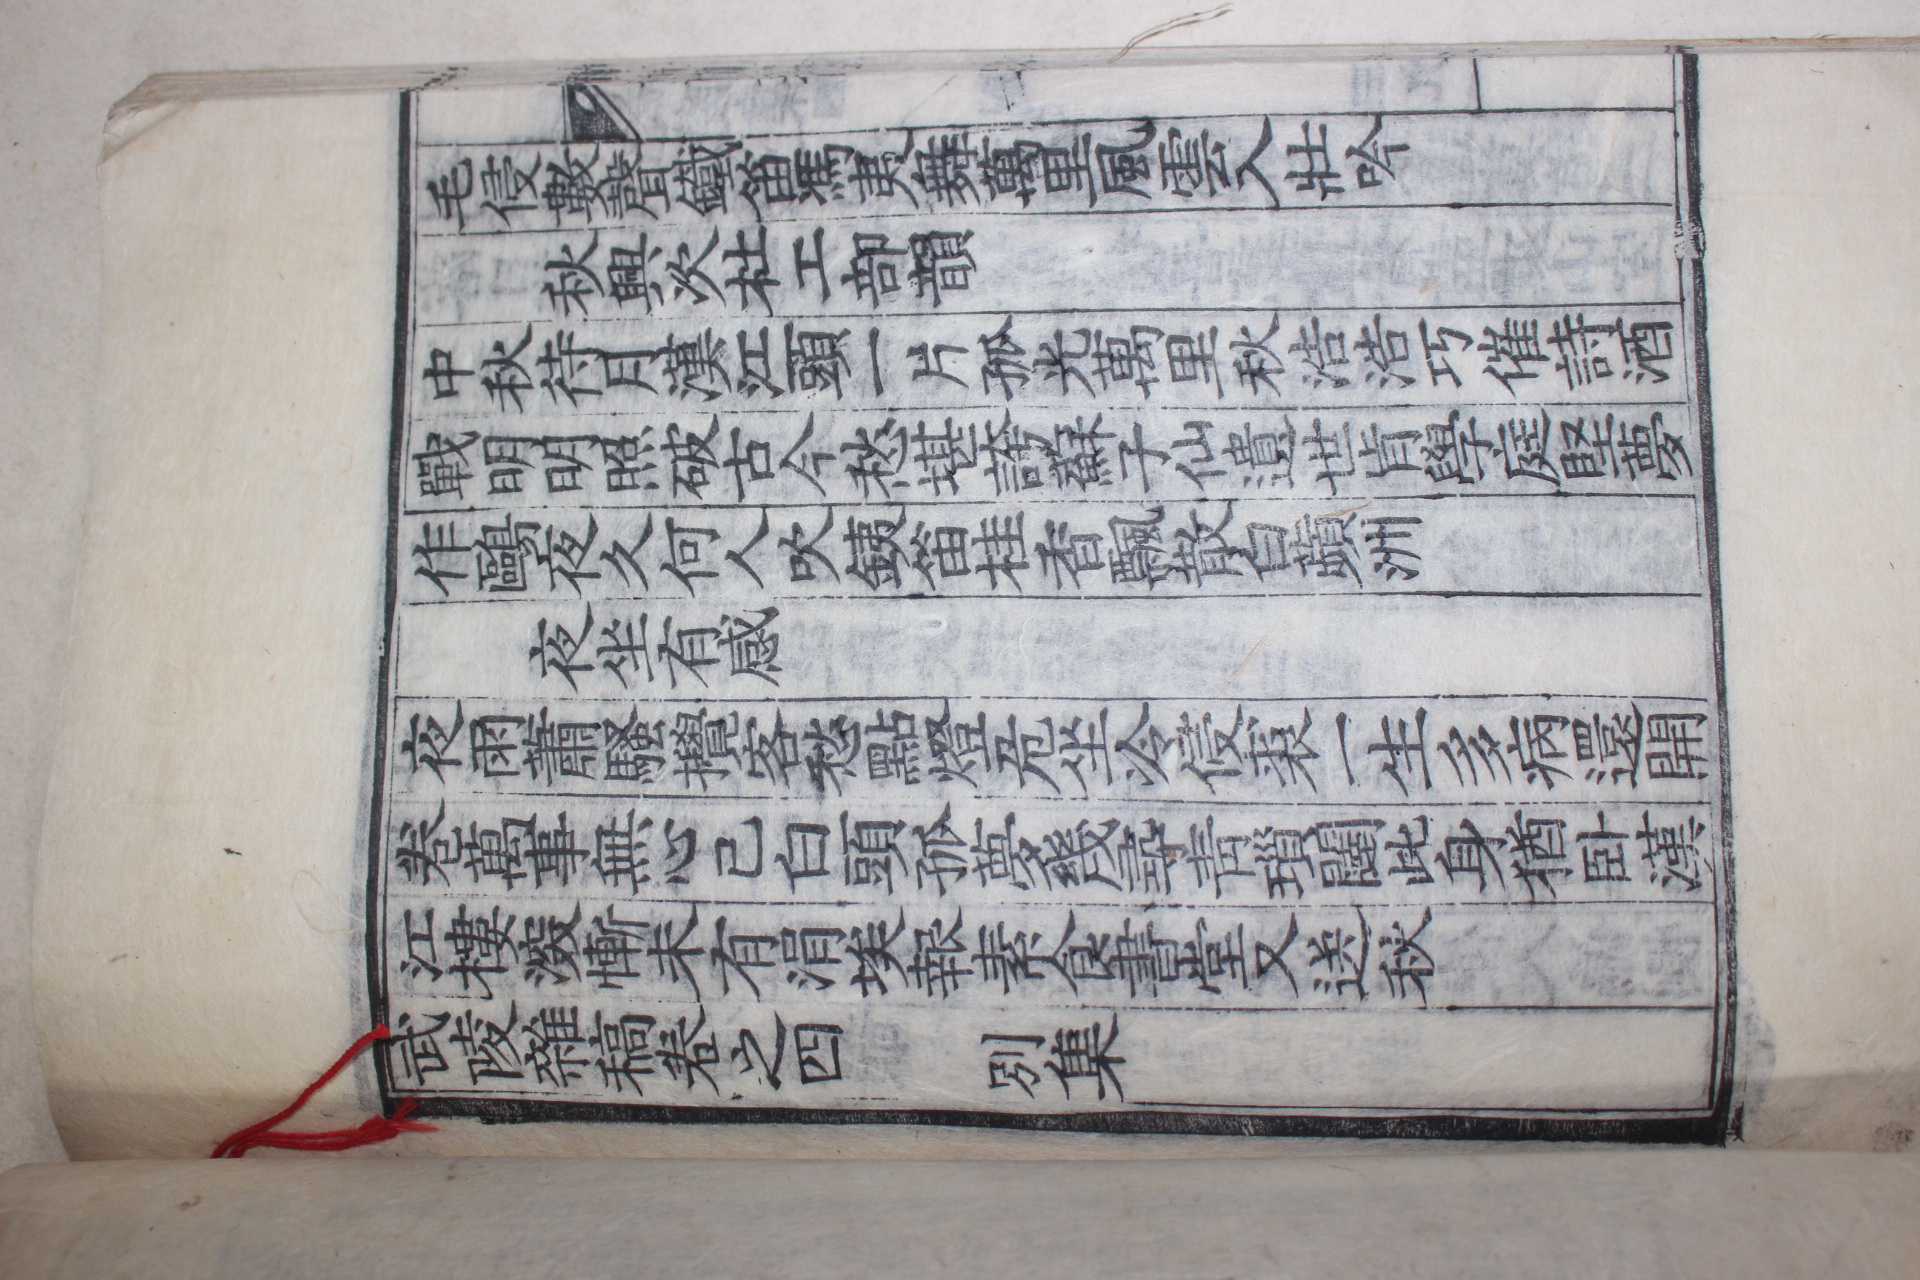 毛侵數聲鐵笛馮夷舞萬里風雲入壯吟
秋興次杜工部韻
中秋待月漢江頭一片孤光萬里秋浩浩巧催詩酒
戰明明照破古今愁堪誇蘇子仙遺世肯學庭堅夢
作鷗夜久何人吹鐵笛桂香飄散白蘋洲
夜坐有感
夜雨蕭騷攪客愁點燈危坐冷侵裘一生多病還開
卷萬事無心已白頭孤夢幾牽靑瑣闥此身猶卧漢
江樓深慚未有涓埃報素食書堂又送秋
武陵雜稿卷之四 別集